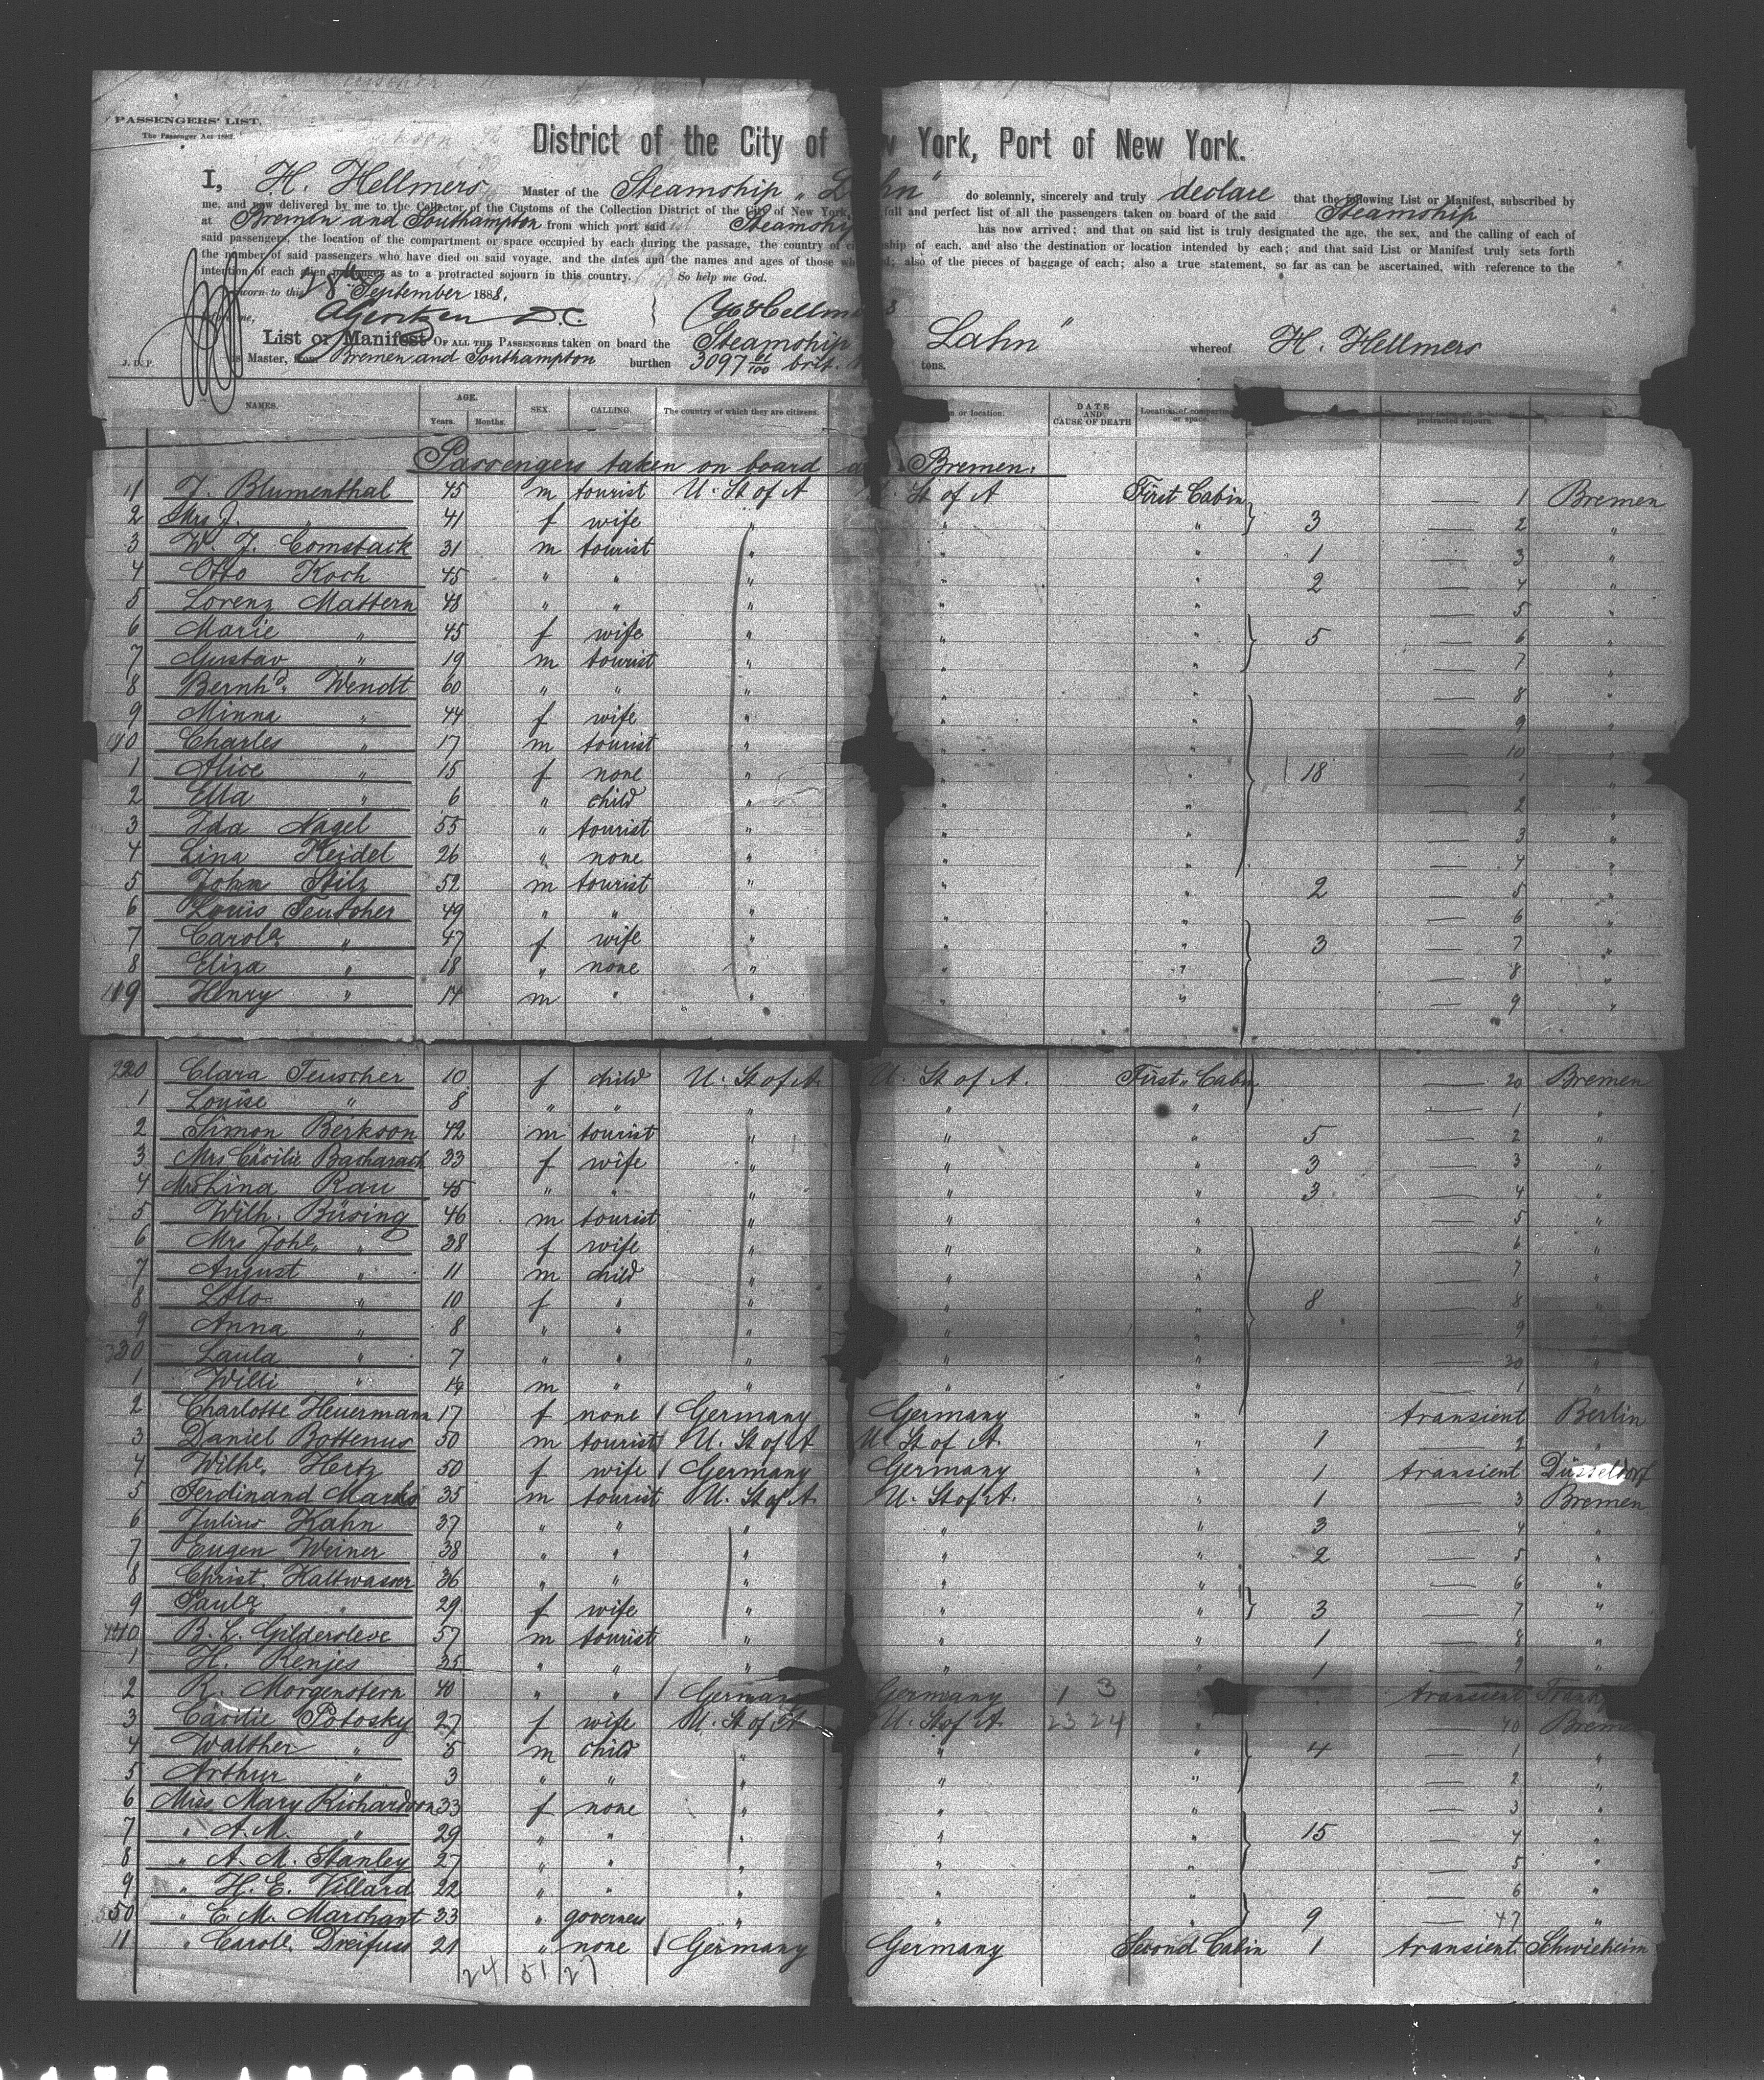 PASSENGERS' LIST.
The Passenger Act 1882.
District of the City of w York, Port of New York.
I, H. Hellmers Master of the Steamship „Lahn" do solemnly, sincerely and truly declare that the following List or Manifest, subscribed by
me, and now delivered by me to the Collector of the Customs of the Collection District of the City of New York, full and perfect list of all the passengers taken on board of the said Steamship
at Bremen and Southampton from which port said Steamship has now arrived; and that on said list is truly designated the age, the sex, and the calling of each of
said passengers, the location of the compartment or space occupied by each during the passage, the country of ship of each, and also the destination or location intended by each; and that said List or Manifest truly sets forth
the number of said passengers who have died on said voyage, and the dates and the names and ages of those who d; also of the pieces of baggage of each; also a true statement, so far as can be ascertained, with reference to the
intention of each alien passenger as to a protracted sojourn in this country. So help me God.
Sworn to this 28th September 1888.
D.C. H. Hellmers
List or Manifest OF ALL THE PASSENGERS taken on board the Steamship Lahn" whereof H. Hellmers
J. D. P. is Master, from Bremen and Southampton burthen 3097 61/100 brit. tons.
NAMES. AGE. Years. Months. SEX. CALLING. The country of which they are citizens. n or location. DATE AND CAUSE OF DEATH Location of compartment or space. protracted sojourn.
Passengers taken on board Bremen.
1 J. Blumenthal 45 m tourist U. St of A St of A First Cabin — 1 Bremen
2 Mrs J. " 41 f wife " " " 3 — 2 "
3 W. J. Comstack 31 m tourist " " " 1 — 3 "
4 Otto Koch 45 " " " " " 2 — 4 "
5 Lorenz Mattern 48 " " " " " — 5 "
6 Marie " 45 f wife " " " 5 — 6 "
7 Gustav " 19 m tourist " " " — 7 "
8 Bernhd. Wendt 60 " " " " " — 8 "
9 Minna " 44 f wife " " " — 9 "
10 Charles " 17 m tourist " " " — 10 "
1 Alice " 15 f none " " " 18 — 1 "
2 Ella " 6 " child " " " — 2 "
3 Ida Nagel 55 " tourist " " " — 3 "
4 Lina Heidel 26 " none " " " — 4 "
5 John Stilz 52 m tourist " " " 2 — 5 "
6 Louis Teuscher 49 " " " " " — 6 "
7 Carola " 47 f wife " " " 3 — 7 "
8 Eliza " 18 " none " " " — 8 "
9 Henry " 14 m " " " " — 9 "
20 Clara Teuscher 10 f child U. St of A. U. St of A. First Cabin — 20 Bremen
1 Louise " 8 " " " " " — 1 "
2 Simon Berkson 42 m tourist " " " 5 — 2 "
3 Mrs Cäcilie Bacharach 33 f wife " " " 3 — 3 "
4 Mrs Lina Rau 45 " " " " " 3 — 4 "
5 Wilh. Büsing 46 m tourist " " " — 5 "
6 Mrs Johe. " 38 f wife " " " — 6 "
7 August " 11 m child " " " — 7 "
8 Lolo " 10 f " " " " 8 — 8 "
9 Anna " 8 " " " " " — 9 "
30 Laula " 7 " " " " " — 30 "
1 Willi " m " " " " — 1 "
2 Charlotte Heuermann 17 f none Germany Germany " transient Berlin
3 Daniel Bottenus 50 m tourist U. St of A U. St of A. " 1 — 2 "
4 Wilhe. Hertz 50 f wife Germany Germany " 1 transient Düsseldorf
5 Ferdinand Marks 35 m tourist U. St of A. U. St of A. " 1 — 3 Bremen
6 Julius Kahn 37 " " " " " 3 — 4 "
7 Eugen Weiner 38 " " " " " 2 — 5 "
8 Christ. Kaltwasser 36 " " " " " — 6 "
9 Paula " 29 f wife " " " 3 — 7 "
40 B. L. Gildersleve 57 m tourist " " " 1 — 8 "
1 H. Renjes 35 " " " " " 1 — 9 "
2 R. Morgenstern 40 " " Germany Germany 1 3 transient Frank
3 Cäcilie Potosky 27 f wife U. St of A U. St of A. 23 24 " — 40 Bremen
4 Walther " 5 m child " " " 4 — 1 "
5 Arthur " 3 " " " " " — 2 "
6 Miss Mary Richardson 33 f none " " " — 3 "
7 " A. M. " 29 " " " " " 15 — 4 "
8 " A. M. Stanley 27 " " " " " — 5 "
9 " H. E. Villard 22 " " " " " — 6 "
50 " E. M. Marchant 33 " governess " " " 9 — 47 "
11 " Carole. Dreifuss 21 " none Germany Germany Second Cabin 1 transient Schwieheim
24 51 27